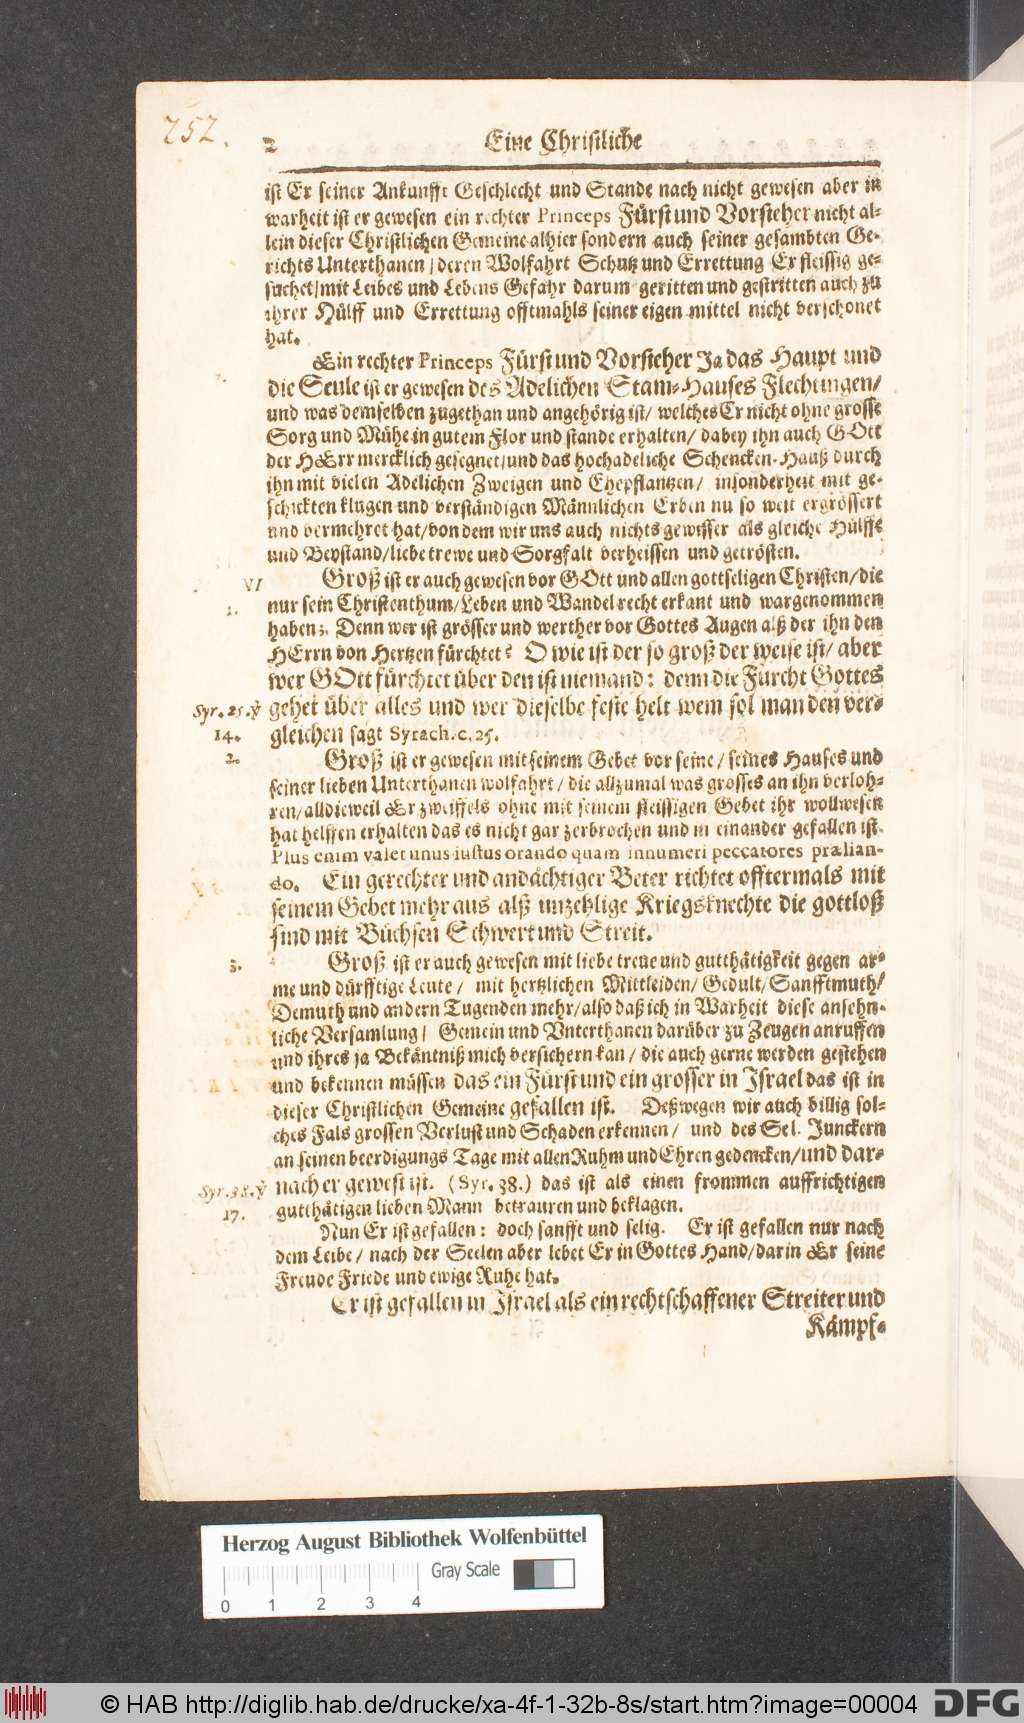 252.
2 Eine Christliche
ist Er seiner Ankunfft Geschlecht und Stande nach nicht gewesen aber in
warheit ist er gewesen ein rechter Princeps Fürst und Vorsteher nicht al-
lein dieser Christlichen Gemeine alhier sondern auch seiner gesambten Ge-
richts Unterthanen/ deren Wolfahrt Schutz und Errettung Er fleissig ge-
suchet/ mit Leibes und Lebens Gefahr darum geritten und gestritten auch zu
ihrer Hülff und Errettung offtmahls seiner eigen mittel nicht verschonet
hat.
Ein rechter Princeps Fürst und Vorsteher Ja das Haupt und
die Seule ist er gewesen des Adelichen Stam-Hauses Flechtingen/
und was demselben zugethan und angehörig ist/ welches Er nicht ohne grosse
Sorg und Mühe in gutem Flor und stande erhalten/ dabey ihn auch GOtt
der HErr mercklich gesegnet/ und das hochadeliche Schencken-Hauß durch
ihn mit vielen Adelichen Zweigen und Ehepflantzen/ insonderheit mit ge-
schickten klugen und verständigen Männlichen Erben nu so weit ergrössert
und vermehret hat/ von dem wir uns auch nichts gewisser als gleiche Hülffe
und Beystand/ liebe trewe und Sorgfalt verheissen und getrösten.
VI
1.
Groß ist er auch gewesen vor GOtt und allen gottseligen Christen/ die
nur sein Christenthum/ Leben und Wandel recht erkant und wargenommen
haben; Denn wer ist grösser und werther vor Gottes Augen alß der ihn den
HErrn von Hertzen fürchtet? O wie ist der so groß der weise ist/ aber
wer GOtt fürchtet über den ist niemand: denn die Furcht Gottes
Syr. 25. ℣ gehet über alles und wer dieselbe feste helt wem sol man den ver-
14. gleichen sagt Syrach. c. 25.
2. Groß ist er gewesen mit seinem Gebet vor seine/ seines Hauses und
seiner lieben Unterthanen wolfahrt/ die allzumal was grosses an ihn verloh-
ren/ alldieweil Er zweiffels ohne mit seinem fleissigen Gebet ihr wollwesen
hat helffen erhalten das es nicht gar zerbrochen und in einander gefallen ist.
Plus enim valet unus iustus orando quam innumeri peccatores prælian-
do. Ein gerechter und andächtiger Beter richtet offtermals mit
seinem Gebet mehr aus alß unzehlige Kriegsknechte die gottloß
sind mit Büchsen Schwert und Streit.
3. Groß ist er auch gewesen mit liebe treue und gutthätigkeit gegen ar-
me und dürfftige Leute/ mit hertzlichen Mittleiden/ Gedult/ Sanfftmuth/
Demuth und andern Tugenden mehr/ also daß ich in Warheit diese ansehn-
liche Versamlung/ Gemein und Vnterthanen darüber zu Zeugen anruffen
und ihres ja Bekäntniß mich versichern kan/ die auch gerne werden gestehen
und bekennen müssen das ein Fürst und ein grosser in Israel das ist in
dieser Christlichen Gemeine gefallen ist. Deßwegen wir auch billig sol-
ches Fals grossen Verlust und Schaden erkennen/ und des Sel. Junckern
an seinen beerdigungs Tage mit allen Ruhm und Ehren gedencken/ und dar-
Syr. 38. ℣ nach er gewest ist. (Syr. 38.) das ist als einen frommen auffrichtigen
17. gutthätigen lieben Mann betrauren und beklagen.
Nun Er ist gefallen: doch sanfft und selig. Er ist gefallen nur nach
dem Leibe/ nach der Seelen aber lebet Er in Gottes Hand/ darin Er seine
Freude Friede und ewige Ruhe hat.
Er ist gefallen in Israel als ein rechtschaffener Streiter und
Kämpf-
Herzog August Bibliothek Wolfenbüttel
Gray Scale
0 1 2 3 4
© HAB http://diglib.hab.de/drucke/xa-4f-1-32b-8s/start.htm?image=00004
DFG